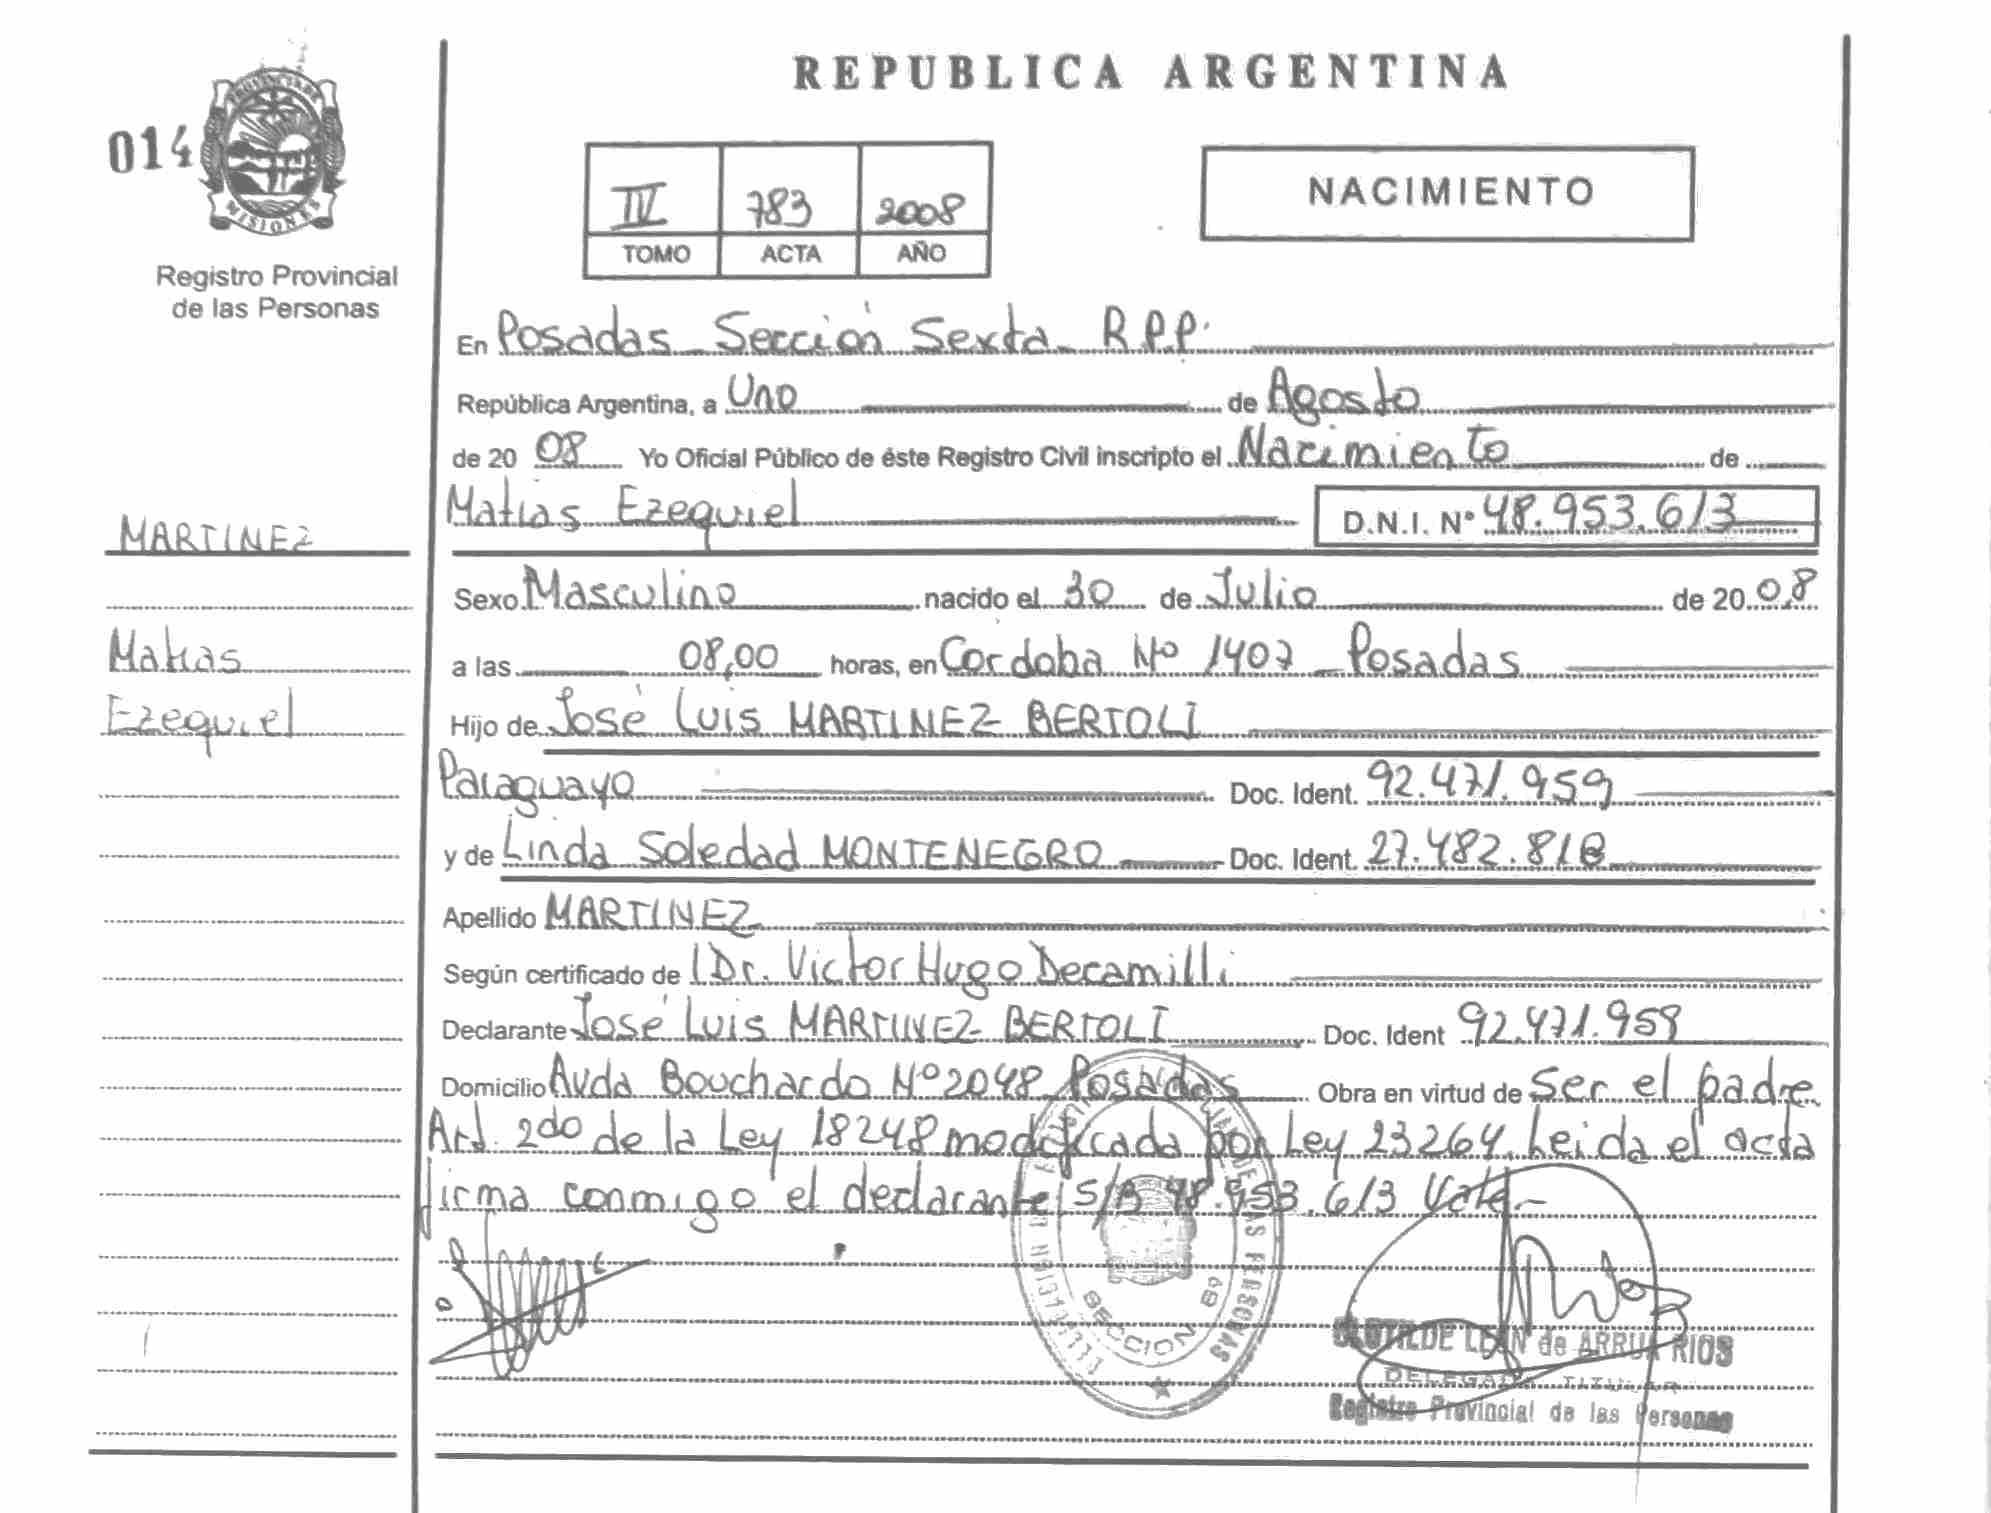 REPUBLICA ARGENTINA
014
PROVINCIA DE
MISIONES
Registro Provincial
de las Personas
IV 783 2008
TOMO ACTA AÑO
NACIMIENTO
En Posadas Sección Sexta R.P.P.
República Argentina, a Uno de Agosto
de 20 08 Yo Oficial Público de éste Registro Civil inscripto el Nacimiento de
Matias Ezequiel D.N.I. N° 48.953.613
MARTINEZ
Matias
Ezequiel
Sexo Masculino nacido el 30 de Julio de 20 08
a las 08,00 horas, en Cordoba Nº 1407 Posadas
Hijo de José Luis MARTINEZ BERTOLI
Paraguayo Doc. Ident. 92.471.959
y de Linda Soledad MONTENEGRO Doc. Ident. 27.482.818
Apellido MARTINEZ
Según certificado de l Dr. Victor Hugo Decamilli
Declarante José Luis MARTINEZ BERTOLI Doc. Ident 92.471.959
Domicilio Avda Bouchardo Nº 2048 Posadas Obra en virtud de Ser el padre
Art. 2do de la Ley 18248 modificada por Ley 23264. Leida el acta
firma conmigo el declarante S/B 48.953.613 Vale.-
SECCION 6ª
CLOTILDE LEAN de ARRUA RIOS
DELEGADA TITULAR
Registro Provincial de las Personas